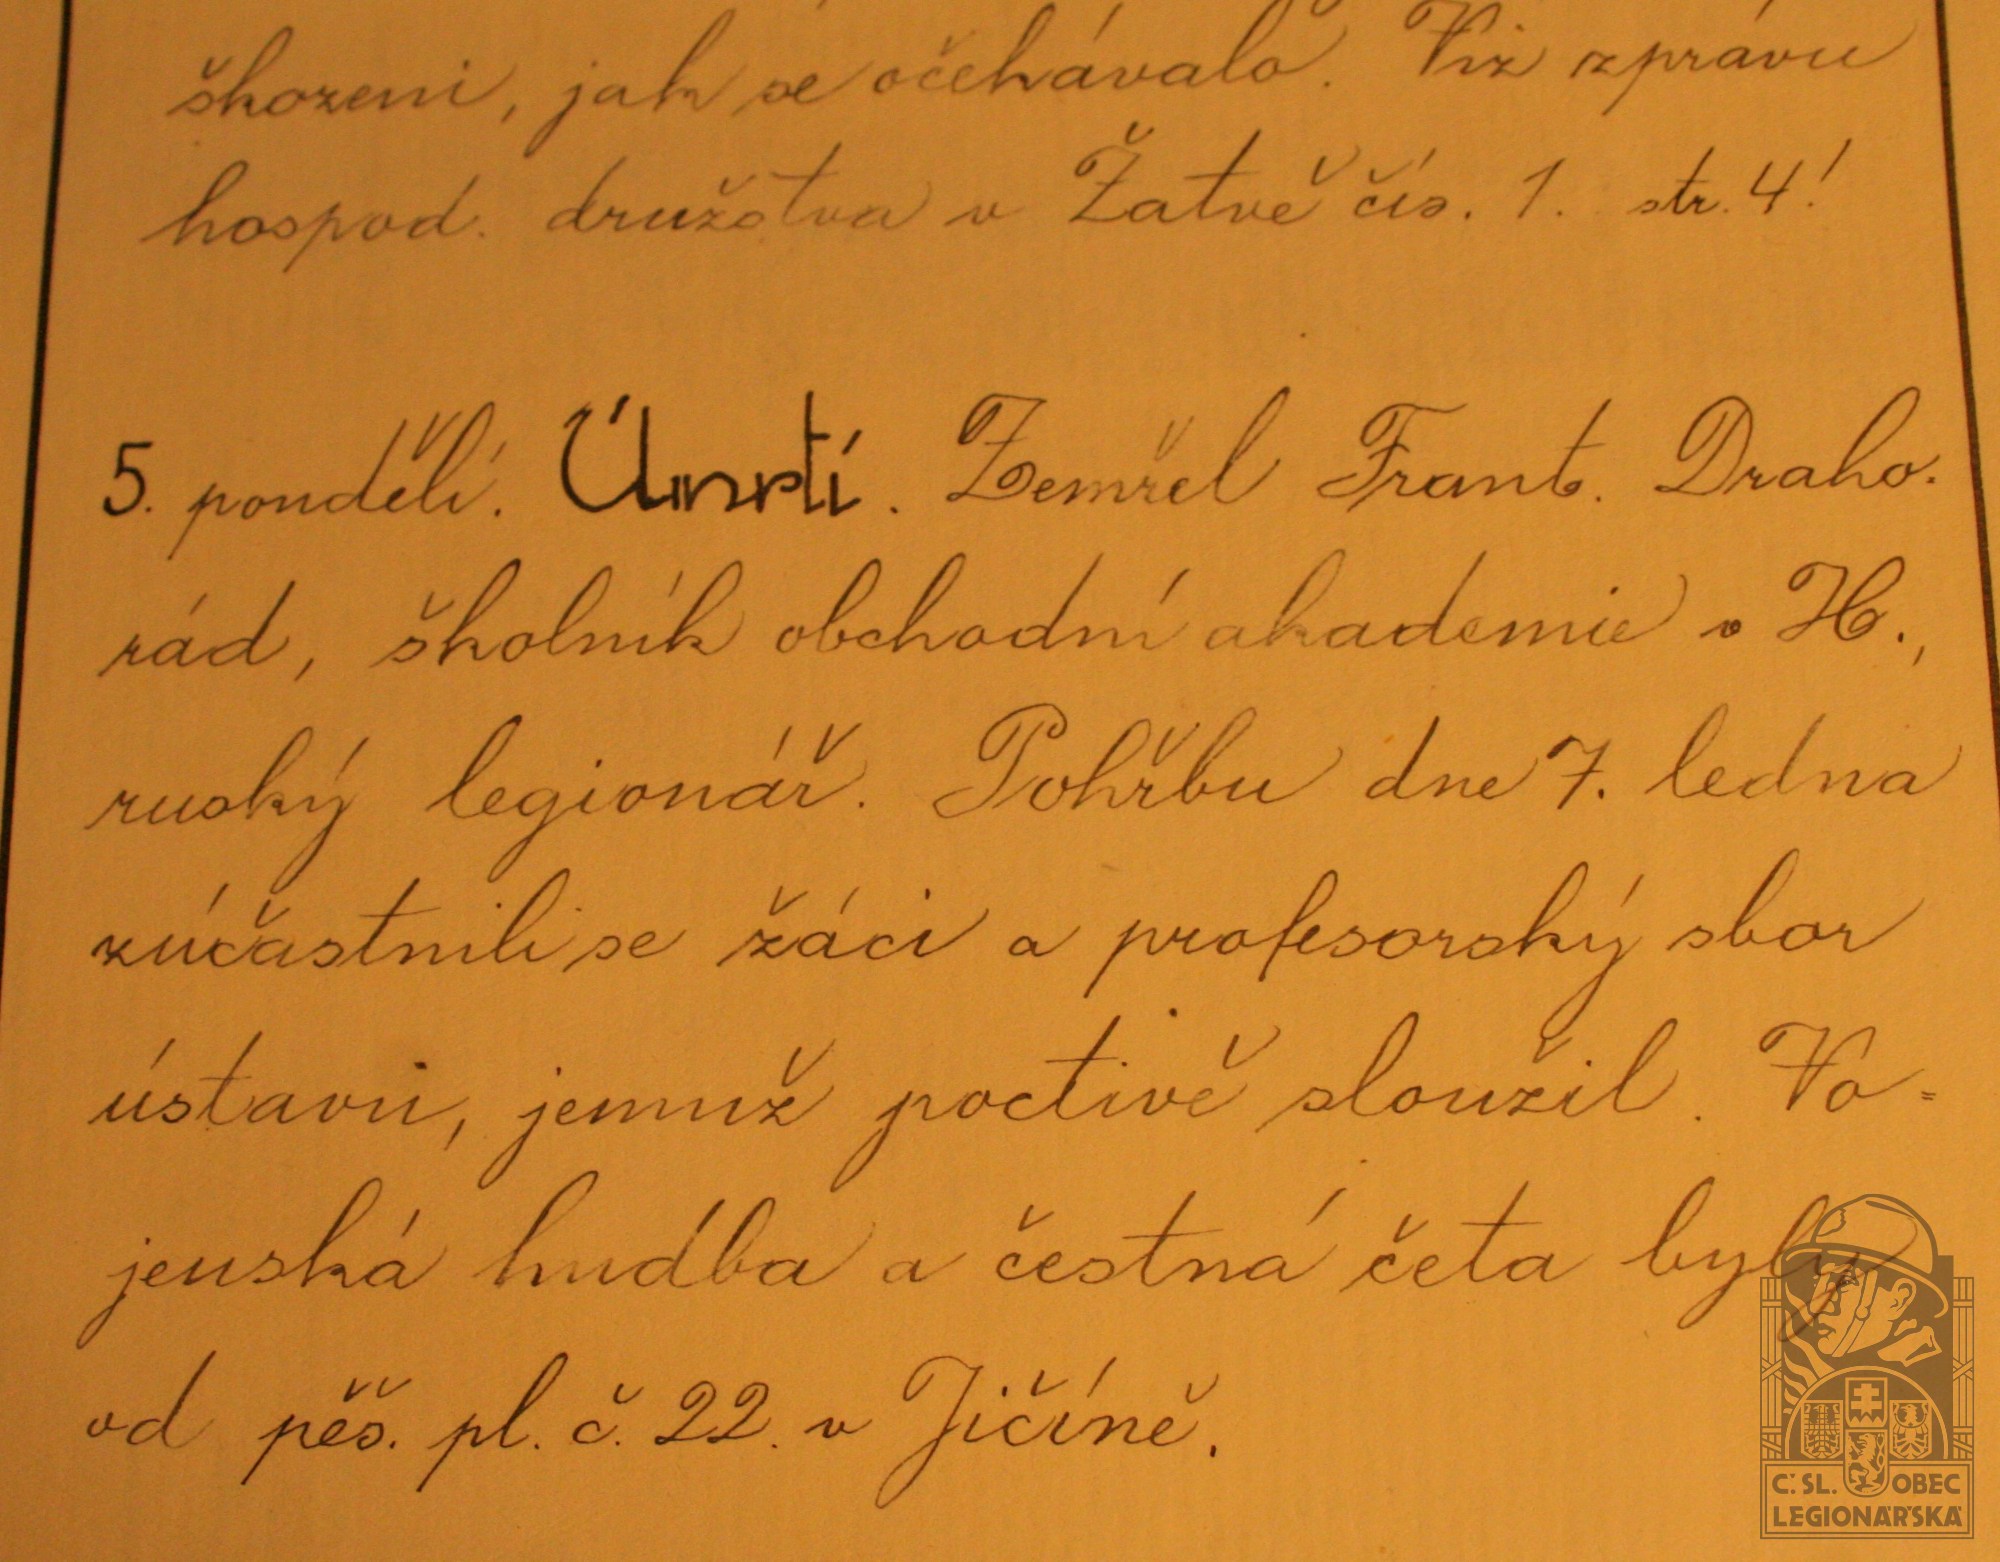 škozeni, jak se očekávalo. Viz zprávu
hospod. družstva v Žatvě čís. 1. str. 4!
5. pondělí. Úmrtí. Zemřel Frant. Draho-
rád, školník obchodní akademie v H.,
ruský legionář. Pohřbu dne 7. ledna
zúčastnili se žáci a profesorský sbor
ústavu, jemuž poctivě sloužil. Vo=
jenská hudba a čestná četa byly
od pěš. pl. č. 22. v Jičíně.
Č. SL. OBEC
LEGIONÁŘSKÁ